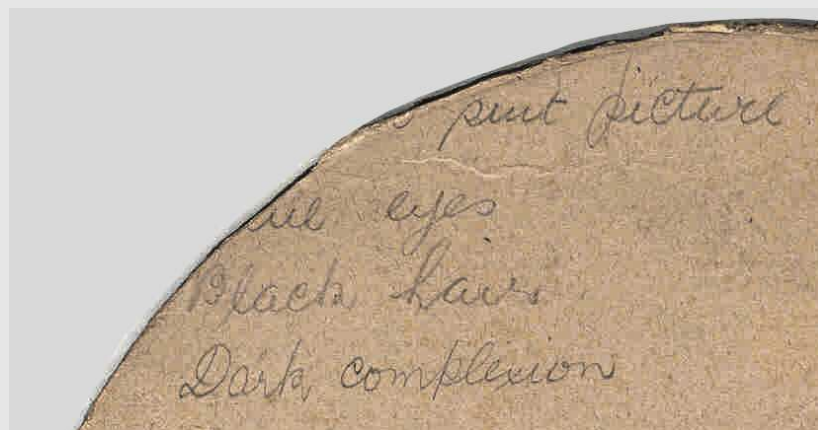 s pint picture
lue eyes
Black hair
Dark complexion